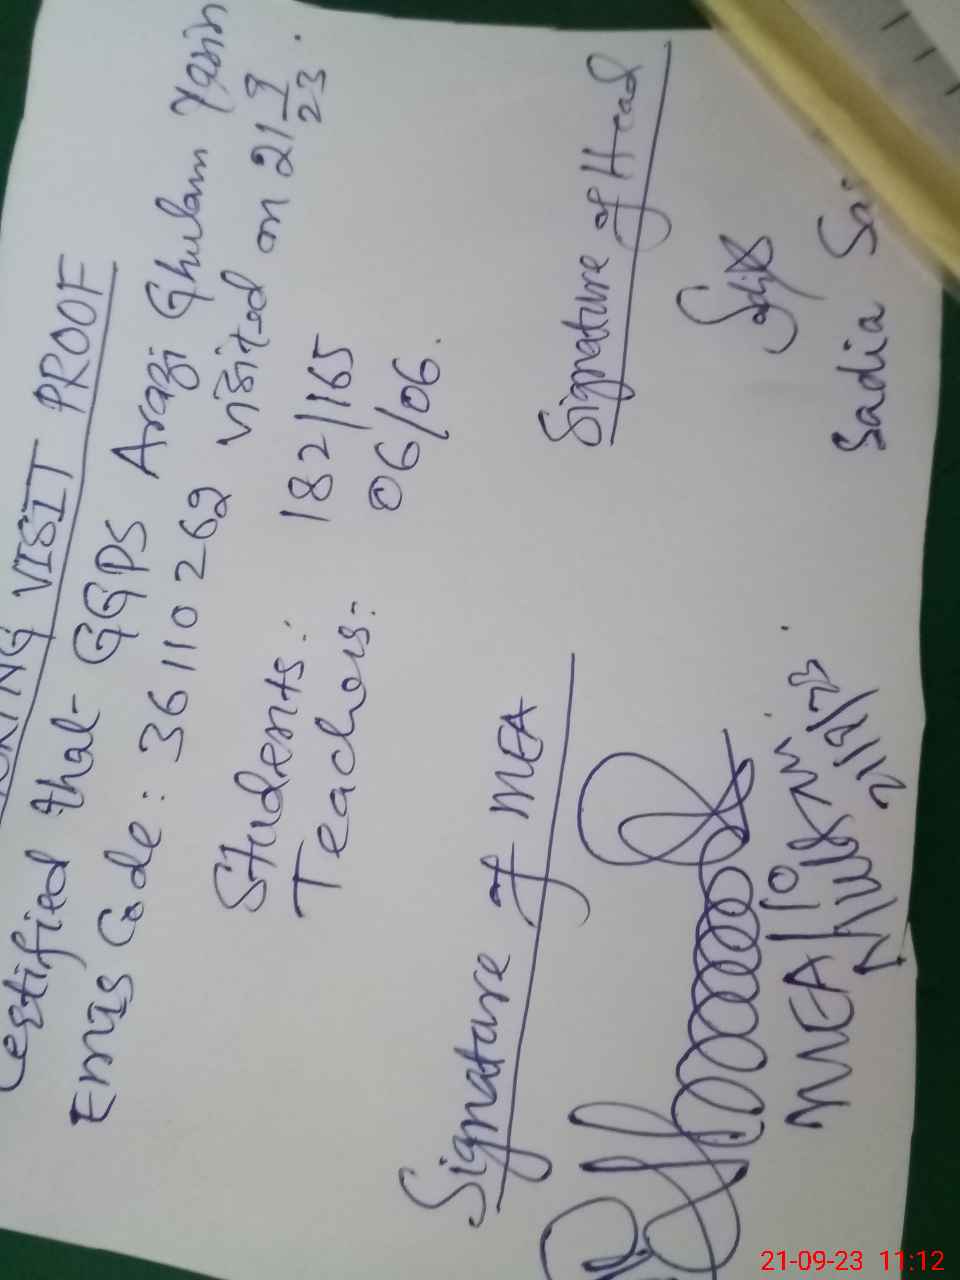 VISIT PROOF
Certified that GGPS Arazi Ghulam Yasin
Emis Code: 36110262 visited on 21 9/23.
Students: 182/165
Teachers: 06/06.
Signature of MEA
Signature of Head
MEA/10
21/9/23
Sadia
21-09-23 11:12